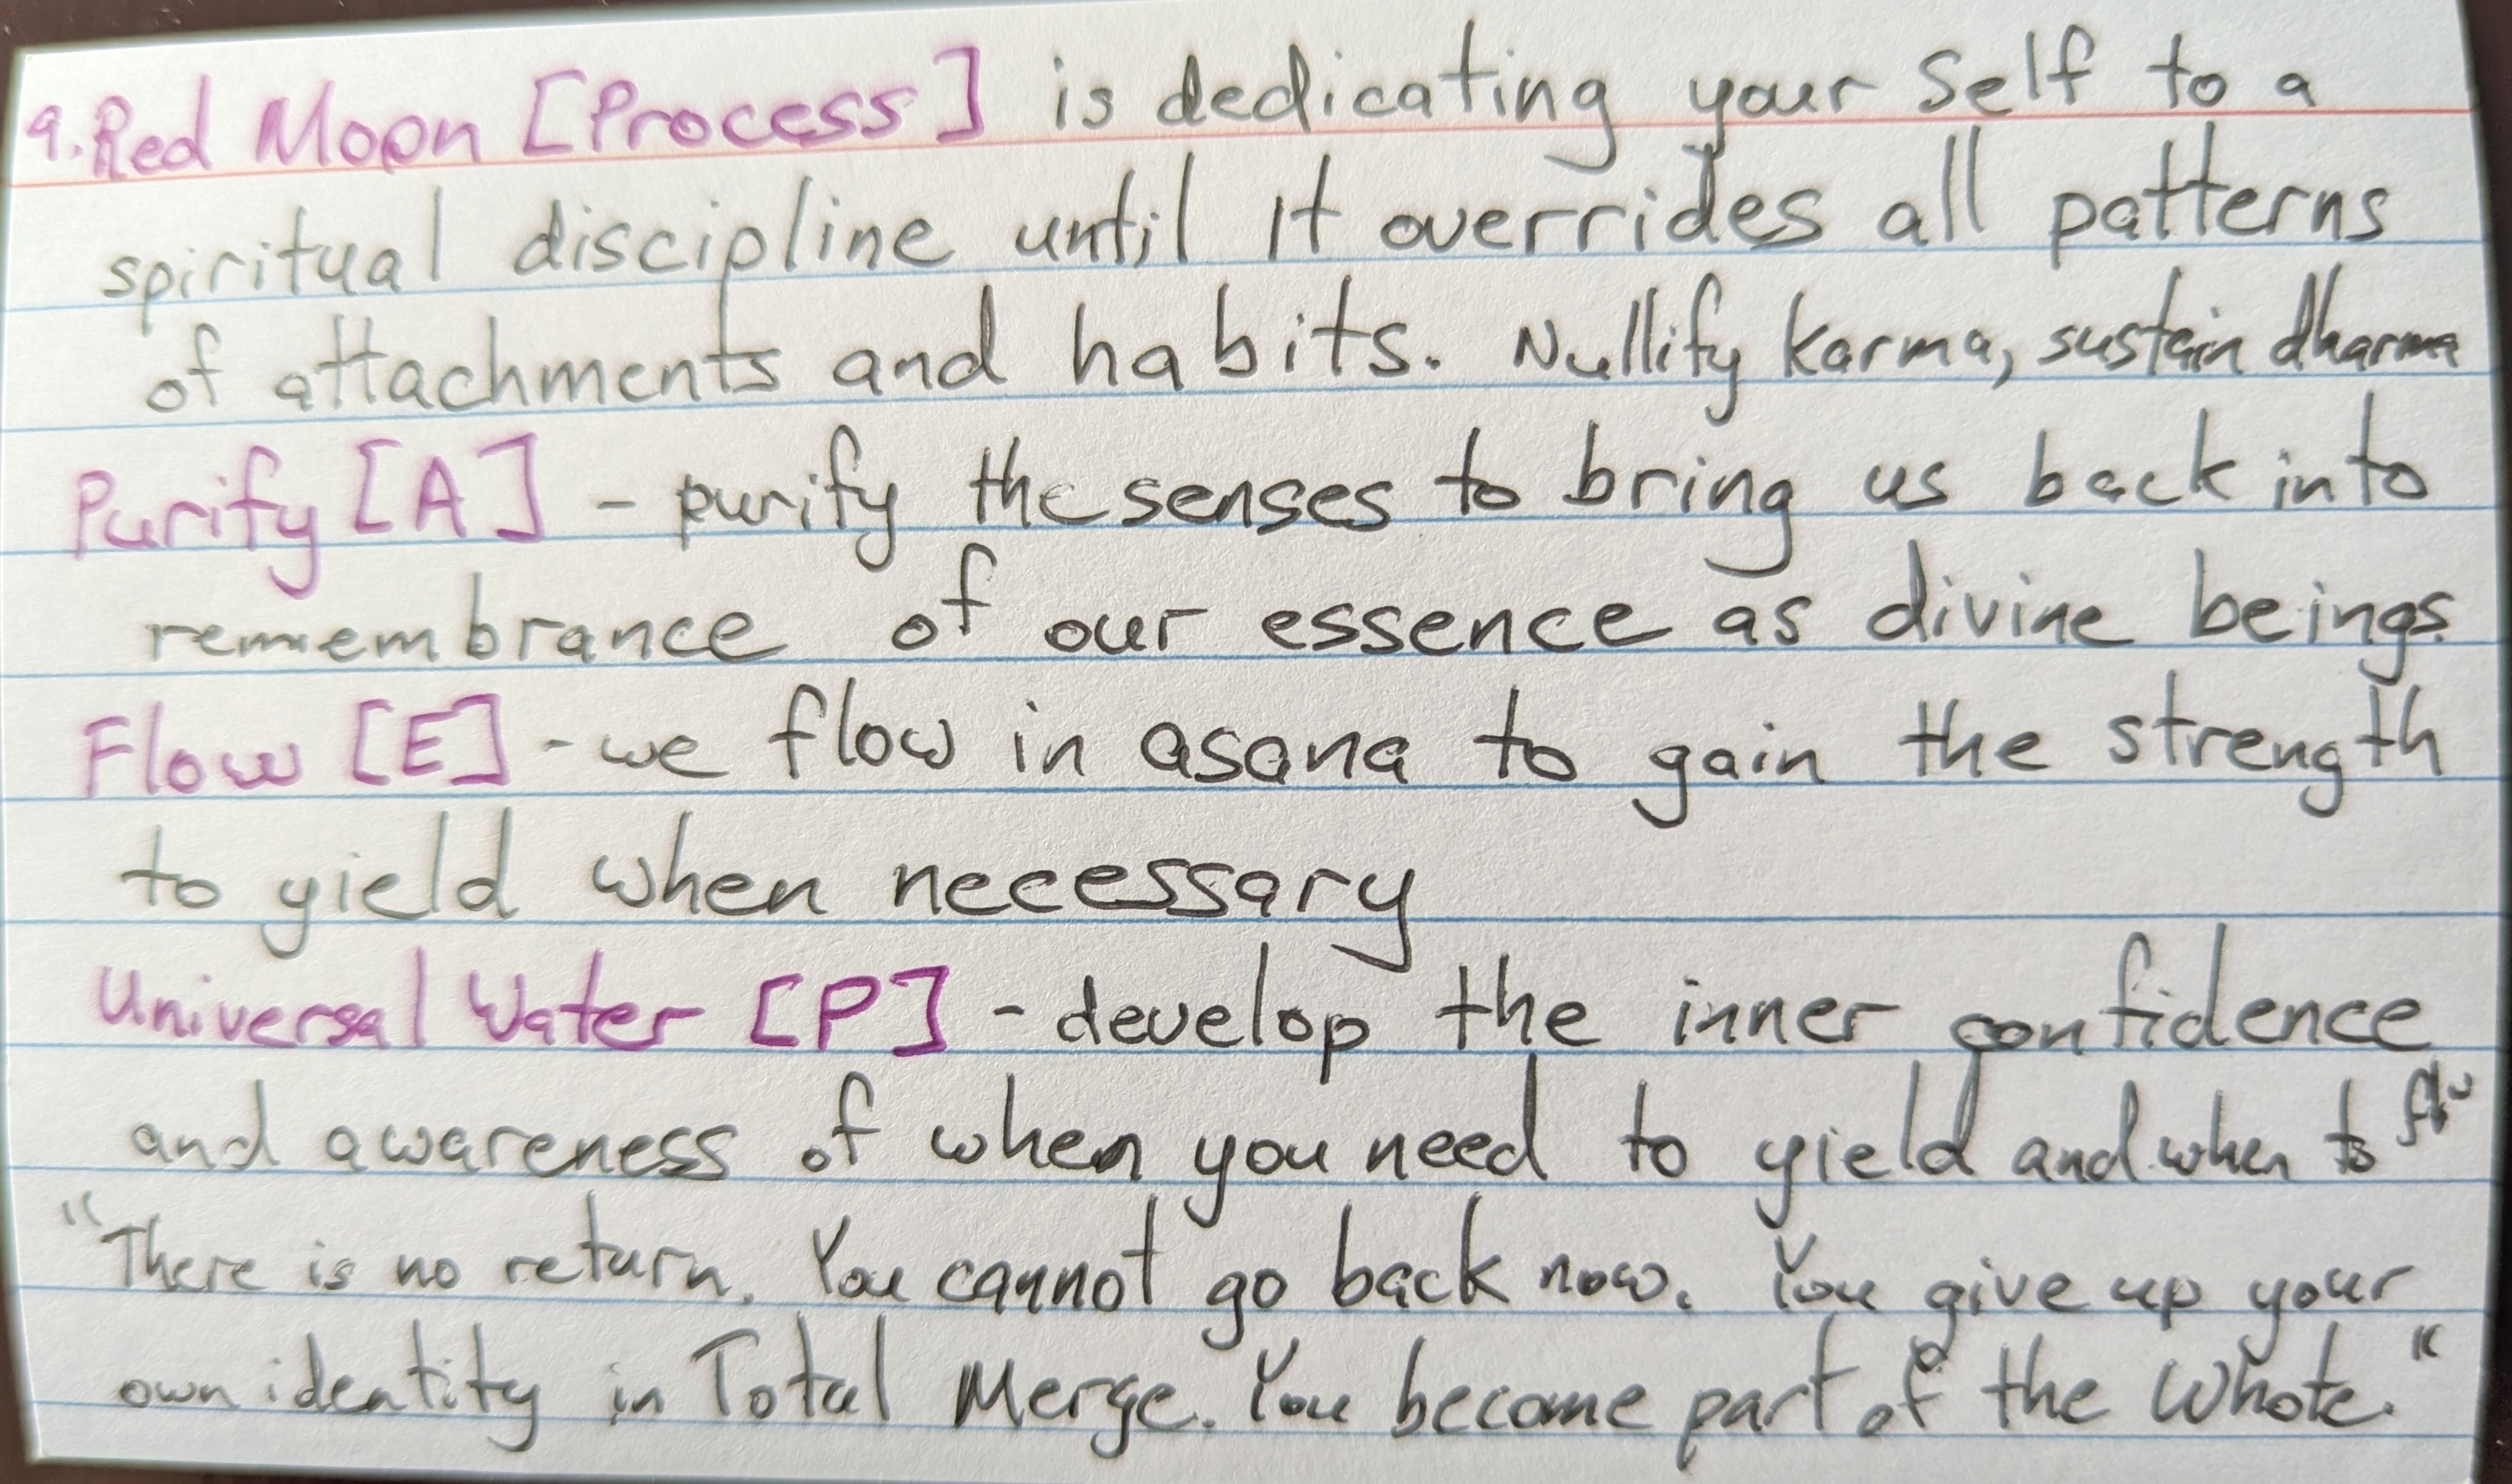 9. Red Moon [Process] is dedicating your Self to a
spiritual discipline until it overrides all patterns
of attachments and habits. Nullify karma, sustain dharma
Purify [A] - purify the senses to bring us back into
remembrance of our essence as divine beings.
Flow [E] - we flow in asana to gain the strength
to yield when necessary
Universal Water [P] - develop the inner confidence
and awareness of when you need to yield and when to
"There is no return. You cannot go back now. You give up your
own identity in Total Merge. You become part of the Whole."